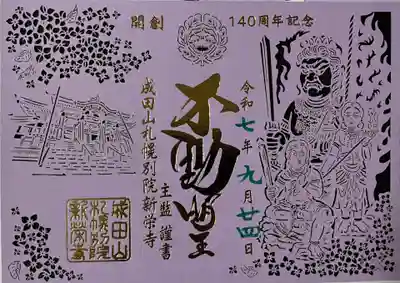 開創
140周年記念
令和七年九月廿四日
不動明王
成田山札幌別院新栄寺
主監 謹書
成田山
札幌別院
新栄寺